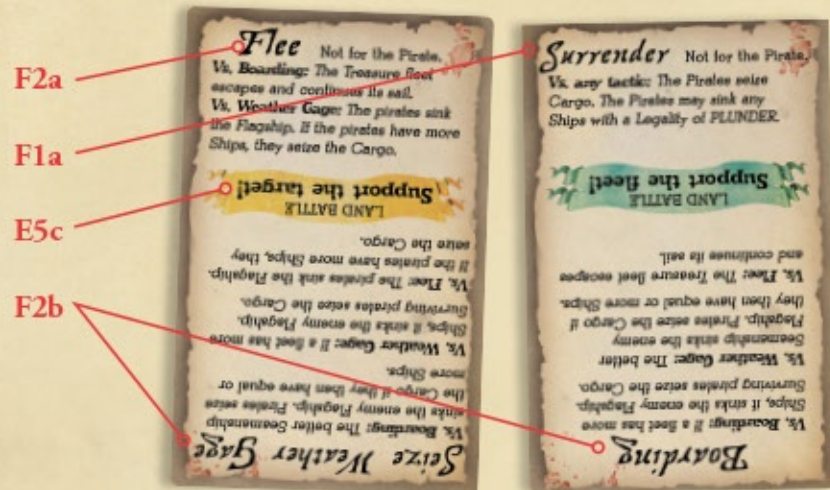 F2a
F1a
E5c
F2b
Flee Not for the Pirate.
Vs. Boarding: The Treasure fleet
escapes and continues its sail.
Vs. Weather Gage: The pirates sink
the Flagship. If the pirates have more
Ships, they seize the Cargo.
Seize Weather Gage
Vs. Boarding: The better Seamenship
sinks the enemy Flagship. Pirates seize
the Cargo if they then have equal or
more Ships.
Vs. Weather Gage: If a fleet has more
Ships, it sinks the enemy Flagship.
Surviving pirates seize the Cargo.
Vs. Flee: The pirates sink the Flagship.
If the pirates have more Ships, they
seize the Cargo.
LAND BATTLE
Support the target!
Surrender Not for the Pirate.
Vs. any tactic: The Pirates seize
Cargo. The Pirates may sink any
Ships with a Legality of PLUNDER.
Boarding
Vs. Boarding: If a fleet has more
Ships, it sinks the enemy Flagship.
Surviving pirates seize the Cargo.
Vs. Weather Gage: The better
Seamenship sinks the enemy
Flagship. Pirates seize the Cargo if
they then have equal or more Ships.
Vs. Flee: The Treasure fleet escapes
and continues its sail.
LAND BATTLE
Support the fleet!